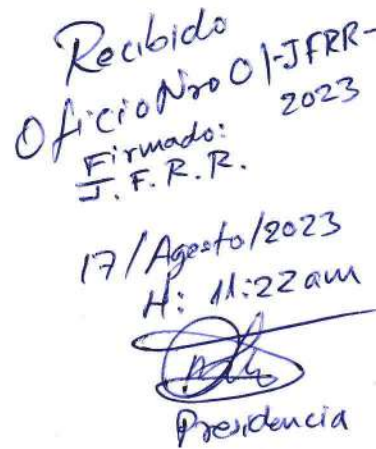 Recibido
Oficio Nro 01-JFRR-
2023
Firmado:
J. F. R. R.
17/Agosto/2023
H: 11:22 am
Presidencia